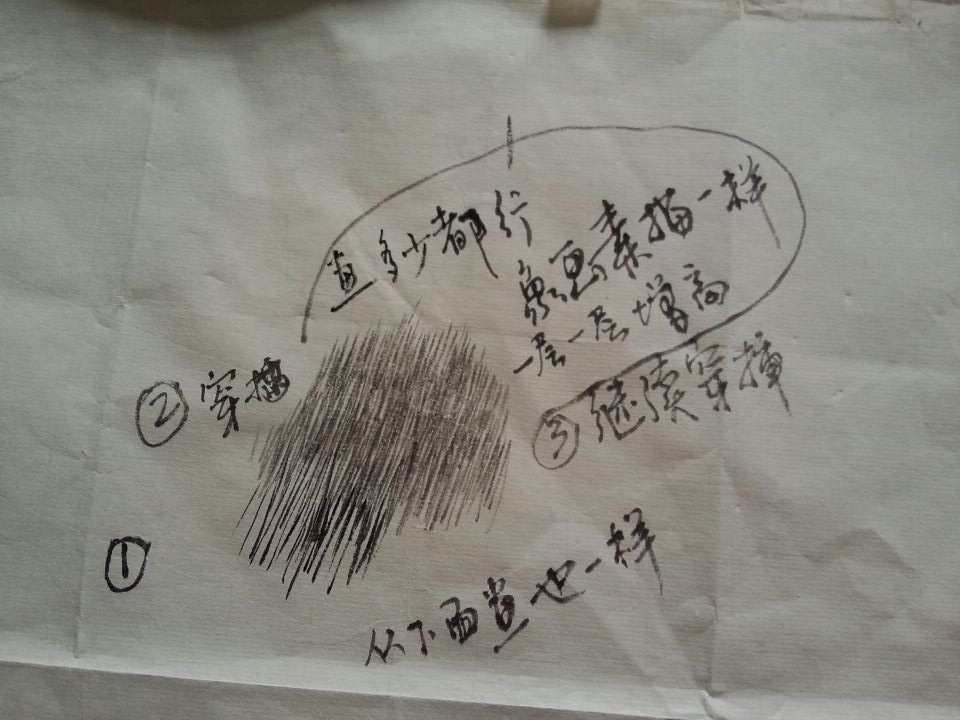 直多少都行
象画素描一样
一层一层增高
② 穿插
③ 继续穿插
①
从下面直也一样